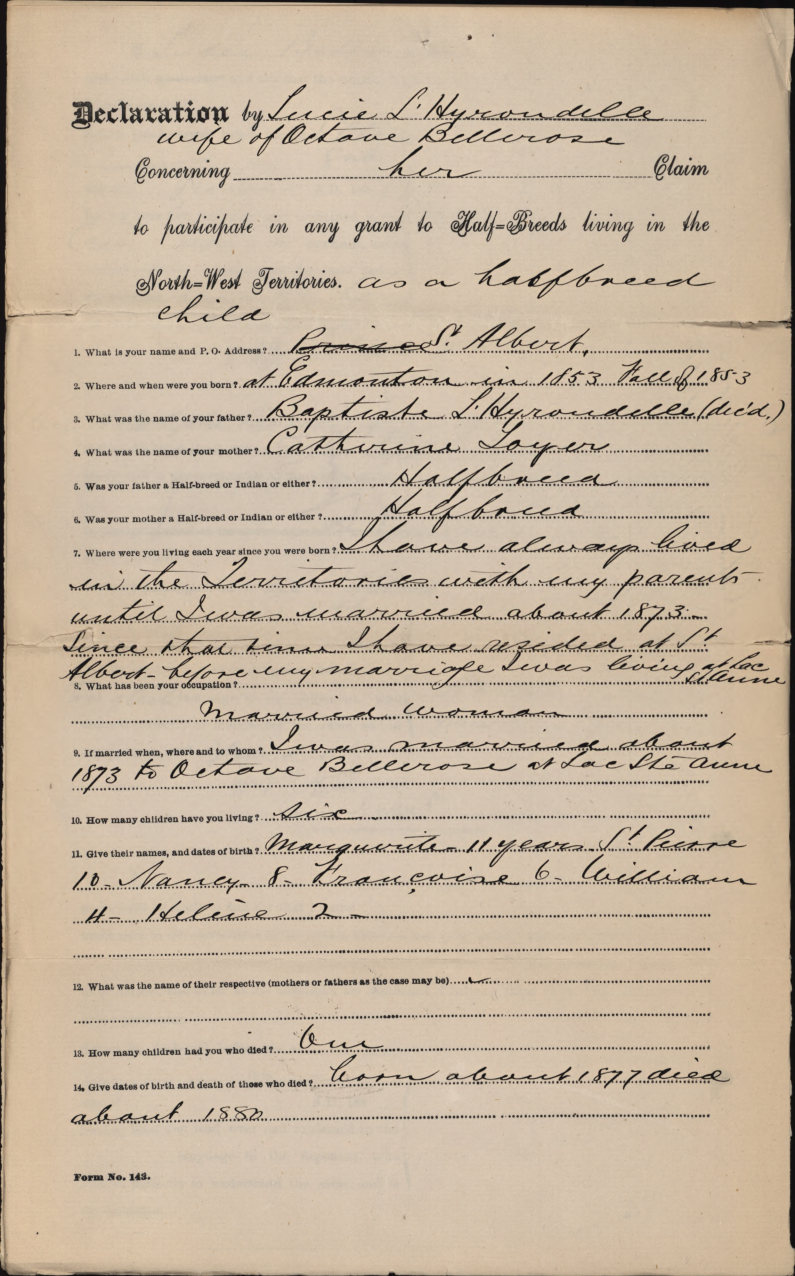 Declaration by Lucie L'Hyrondelle
wife of Octave Bellerose
Concerning her Claim
to participate in any grant to Half=Breeds living in the
North=West Territories. as a halfbreed
child
1. What is your name and P. O. Address? St Albert,
2. Where and when were you born? at Edmonton in 1853 Fall of 1853
3. What was the name of your father? Baptiste L'Hyrondelle (dec'd.)
4. What was the name of your mother? Catherine Loyer
5. Was your father a Half-breed or Indian or either? Halfbreed
6. Was your mother a Half-breed or Indian or either? Halfbreed
7. Where were you living each year since you were born? I have always lived
in the Territories with my parents
until I was married about 1873.
Since that time I have resided at St
Albert - before my marriage I was living at Lac
St Anne
8. What has been your occupation?
Married woman
9. If married when, where and to whom? I was married about
1873 to Octave Bellerose at Lac Ste Anne
10. How many children have you living? six
11. Give their names, and dates of birth? Marguerite - 11 years St Pierre
10 - Nancy - 8 - Françoise 6 - William
4 - Helène 2 -
12. What was the name of their respective (mothers or fathers as the case may be)
13. How many children had you who died? One
14. Give dates of birth and death of those who died? born about 1877 died
about 1880
Form No. 143.